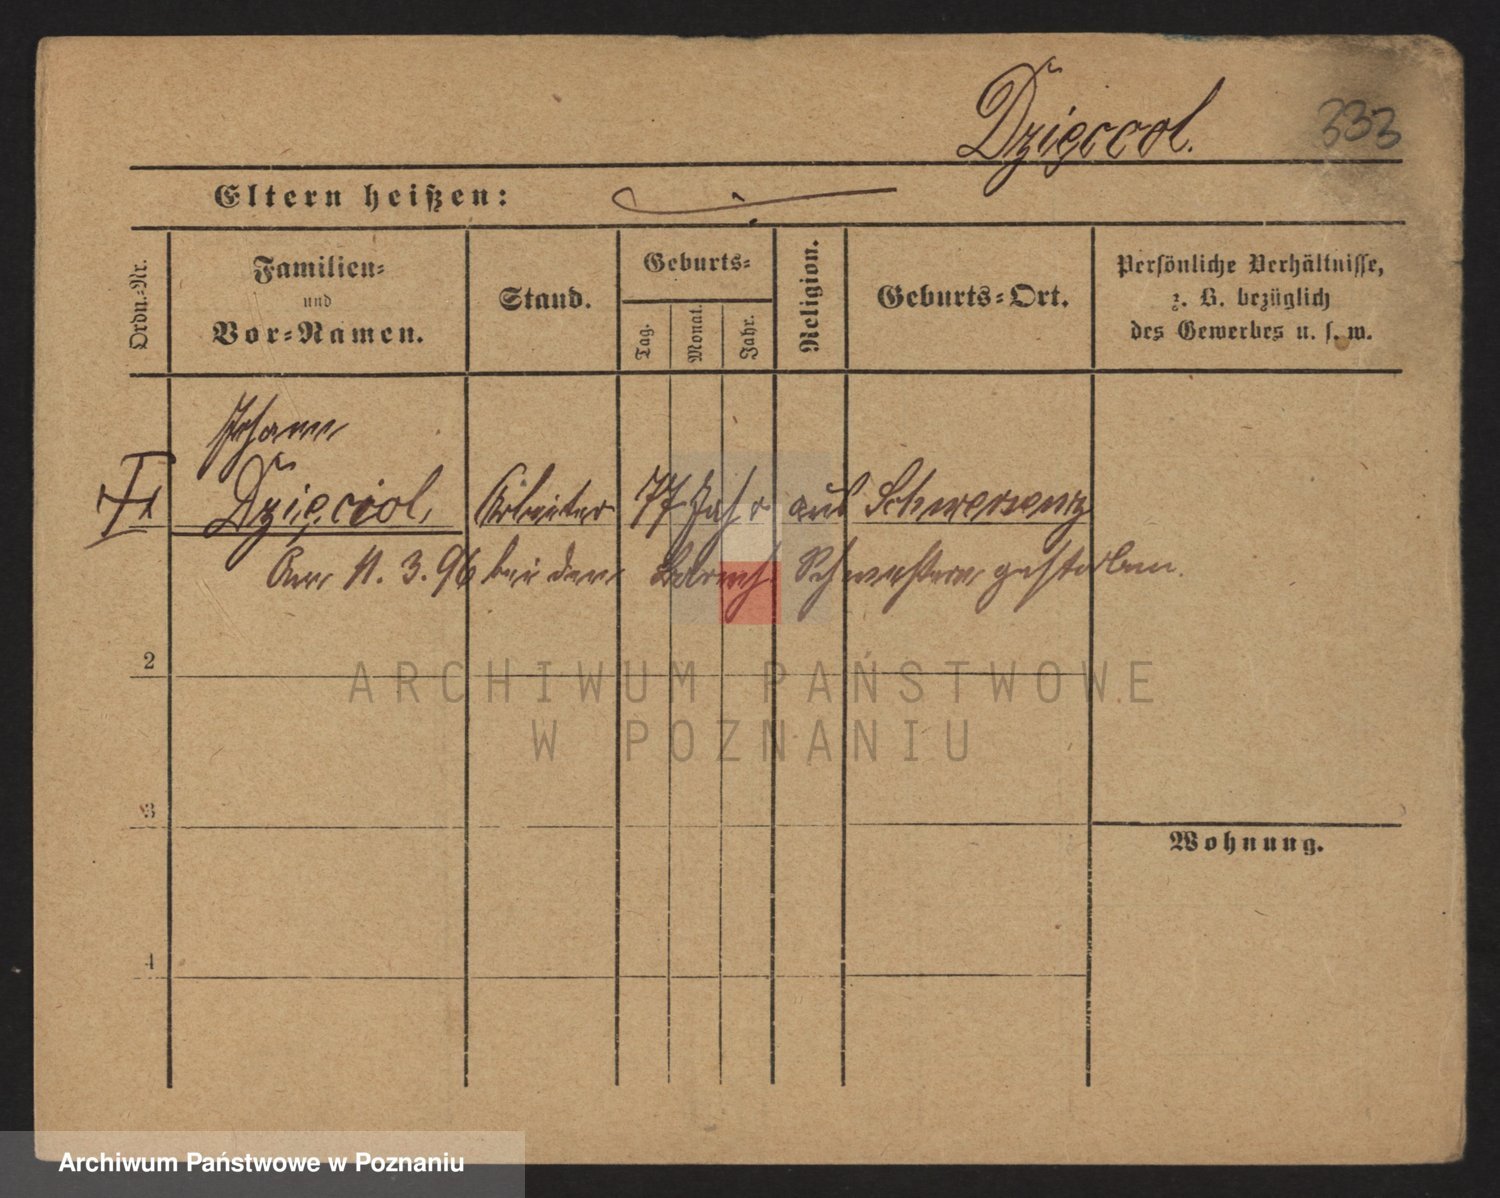 Dzięciol.
333
Eltern heißen:
Ordn.-Nr.
Familien-
und
Vor-Namen.
Stand.
Geburts-
Tag.
Monat.
Jahr.
Religion.
Geburts-Ort.
Persönliche Verhältnisse,
z. B. bezüglich
des Gewerbes u. s. w.
Johann
Dzięciol, Arbeiter 77 Jahr aus Schwersenz
Am 11. 3. 96 bei den Barmh. Schwestern gestorben.
2
3
4
Wohnung.
ARCHIWUM PAŃSTWOWE
W POZNANIU
Archiwum Państwowe w Poznaniu